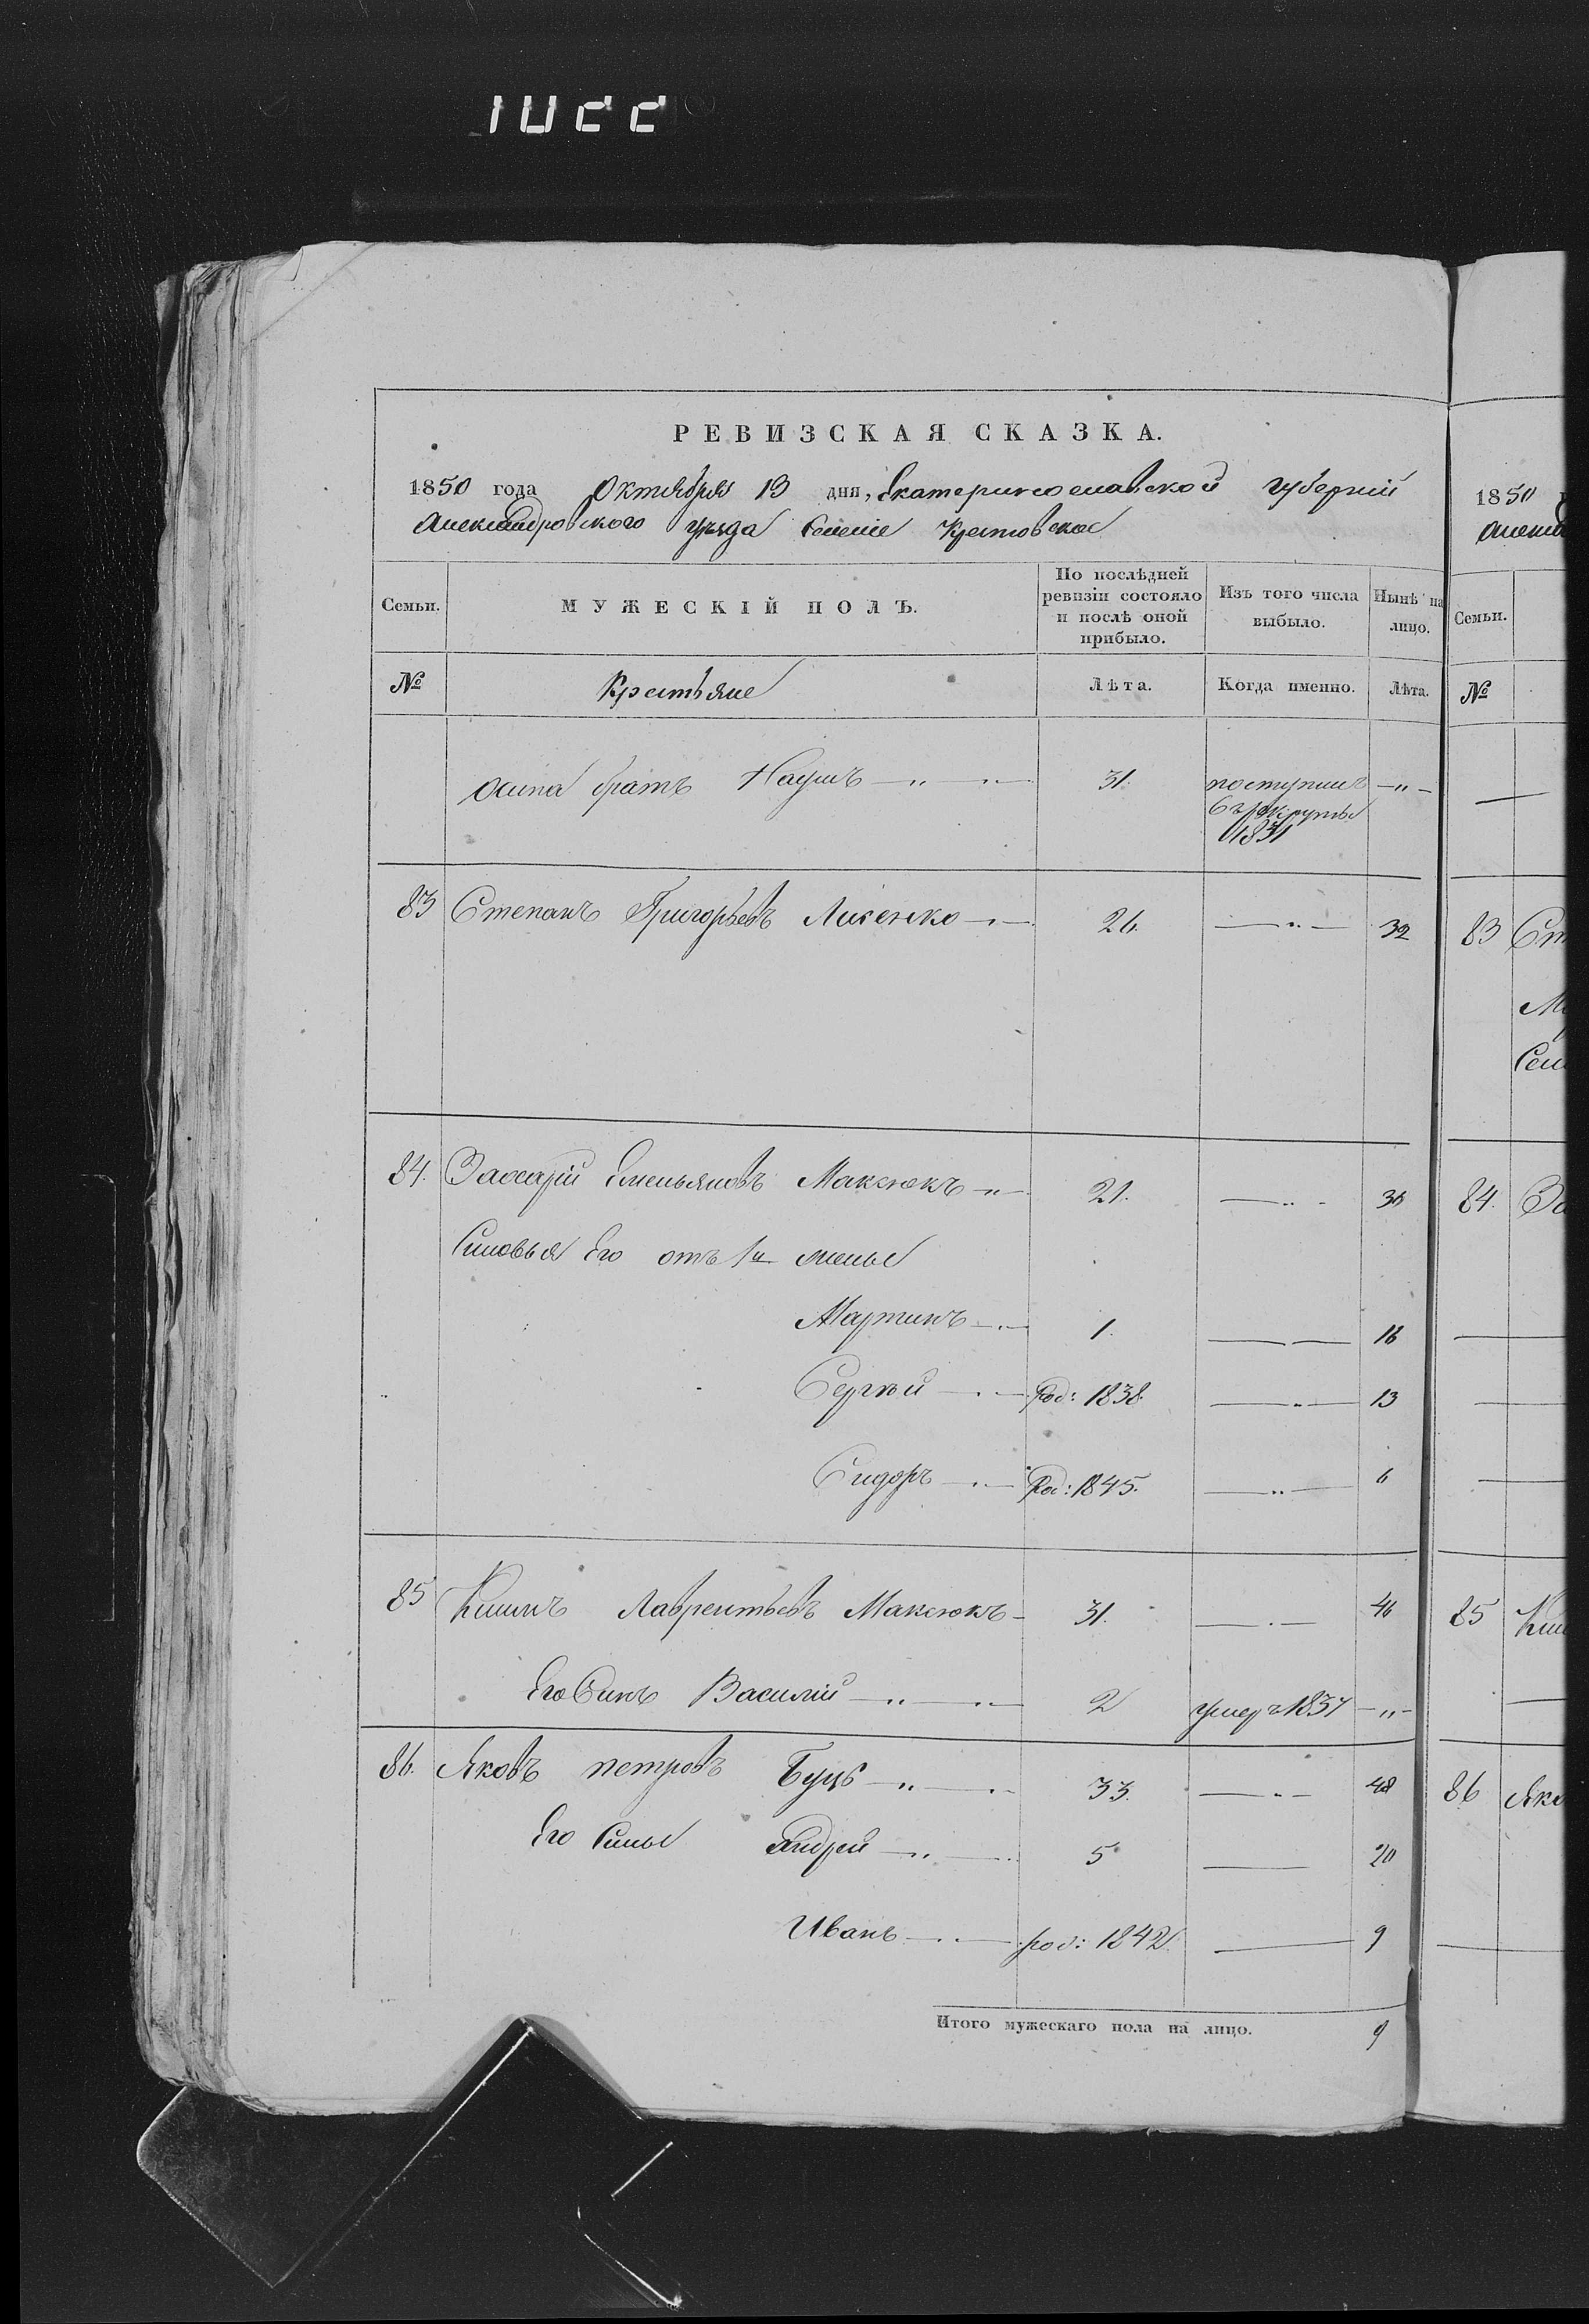 1022
РЕВИЗСКАЯ СКАЗКА.
1850 года Октября 13 дня, Екатеринославской губерніи
Александровского уезда Селеніе Крестовское
Семьи. МУЖЕСКІЙ ПОЛЪ. По послѣдней ревизіи состояло и послѣ оной прибыло. Изъ того числа выбыло. Нынѣ на лицо.
№ Крестьяне Лѣта. Когда именно. Лѣта.
Осипа братъ Наумъ — " — " — 31. поступилъ — " —
въ рекруты
83 Степанъ Григорьевъ — " — 26. — " — 32
84. Захарій Емельяновъ Максюкъ — " — 21. — " — 36
Синовья Его отъ 1й жены
Мартинъ — " — 1. — — 16
Сергѣй — " — Род: 1838. — " — 13
Сидоръ — " — Род: 1845. — " — 6
85 Лаврентьевъ Максюкъ — 31. — " — 46
Его Синъ Василій — " — " — 2 умеръ 1837 — " —
86. Яковъ петровъ Буцъ — " — " — 33. — " — 48
Его Сины Андрей — " — 5 — 20
Иванъ — " — род: 1842. — 9
Итого мужескаго пола на лицо. 9
1850
Семьи.
№
83 Ст
84. За
85
86 Яко